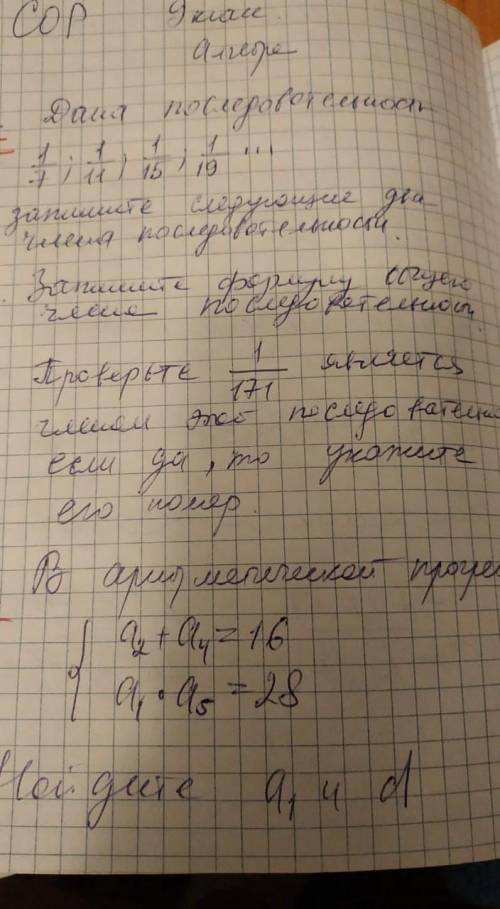 СОР 9 класс
Алгебра
Дана последовательность
1/7 ; 1/11 ; 1/15 ; 1/19 ...
запишите следующие два
члена последовательности.
Запишите формулу общего
члена последовательности
Проверьте 1/171 является
членом этой последовательно
если да, то укажите
его номер.
В арифметической прогре
a₂ + a₄ = 16
a₁ · a₅ = 28
Найдите a₁ и d